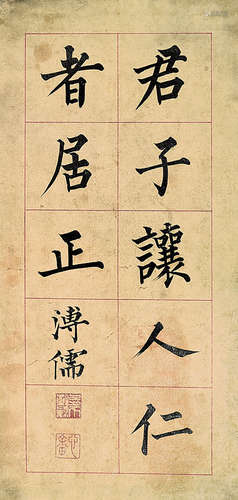 君子讓人仁
者居正
溥儒